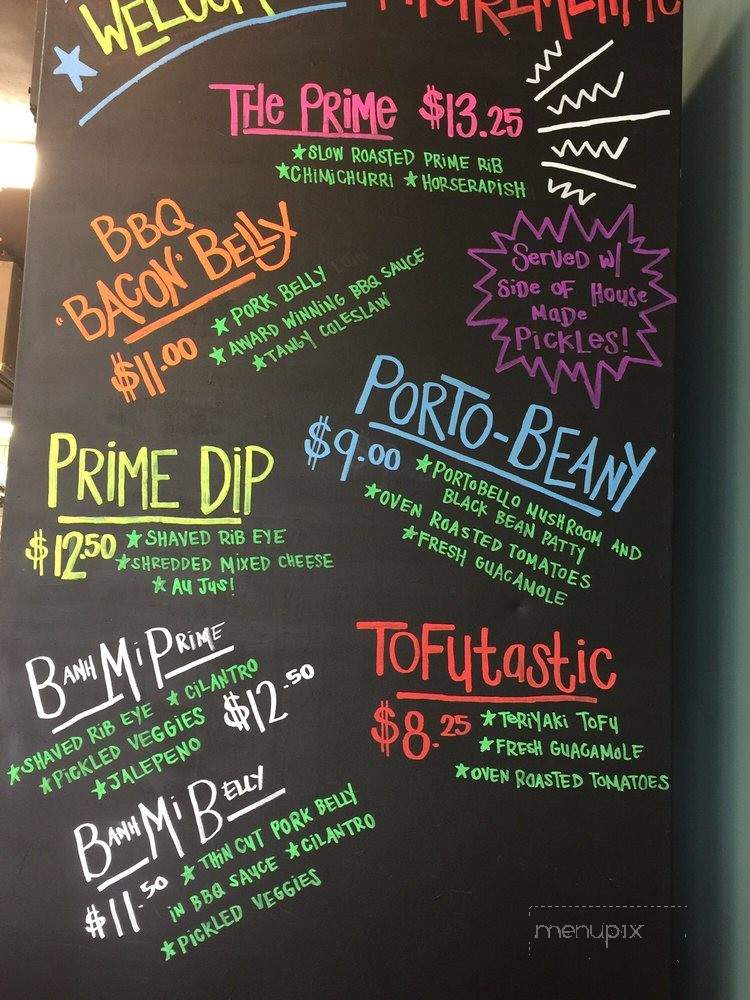 WELCOME
THE PRIME $13.25
★SLOW ROASTED PRIME RIB
★CHIMICHURRI ★HORSERADISH
BBQ
"BACON" BELLY
$11.00
★ PORK BELLY
★ AWARD WINNING BBQ SAUCE
★TANGY COLESLAW
SERVED W/
SIDE OF HOUSE
MADE
PICKLES!
PORTO-BEANY
$9.00
★PORTOBELLO MUSHROOM AND
BLACK BEAN PATTY
★OVEN ROASTED TOMATOES
★FRESH GUACAMOLE
PRIME DIP
$12.50
★ SHAVED RIB EYE
★SHREDDED MIXED CHEESE
★ AU JUS!
BANH MI PRIME
$12.50
★SHAVED RIB EYE ★ CILANTRO
★PICKLED VEGGIES
★JALEPENO
TOFUTASTIC
$8.25
★TERIYAKI TOFU
★FRESH GUACAMOLE
★OVEN ROASTED TOMATOES
BANH MI BELLY
$11.50
★ THIN CUT PORK BELLY
IN BBQ SAUCE ★CILANTRO
★PICKLED VEGGIES
menupix